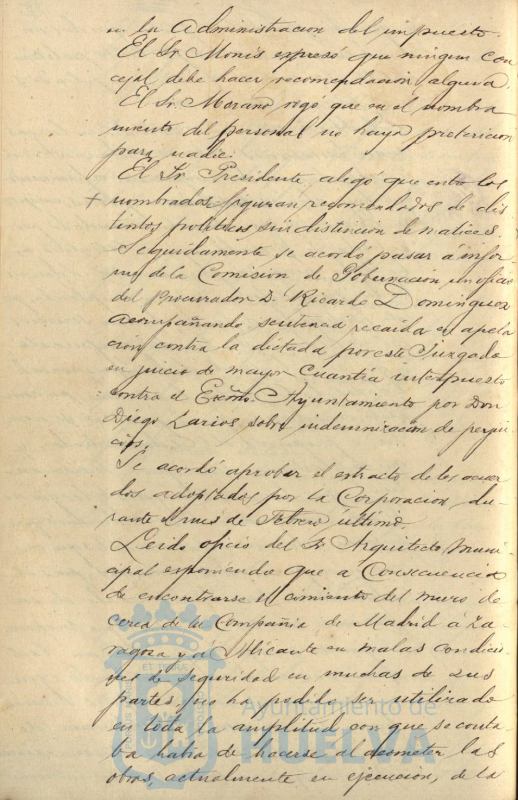 en la Administracion del impuesto.
El Sr. Monis expresó que ningun con
cejal debe hacer recomendación alguna.
El Sr. Morano rogo que en el nombra
miento del personal no haya pretericion
para nadie.
El Sr. Presidente alegó que entre los
+ nombrados figuran recomendados de dis
tintos politicos sin distincion de matices.
Seguidamente se acordó pasar á infor
me de la Comision de Gobernacion un oficio
del Procurador D. Ricardo Dominguez
acompañando sentencia recaida en apela
cion contra la dictada por este Juzgado
en juicio de mayor cuantía interpuesto
contra el Excmo. Ayuntamiento por Don
Diego Larios sobre indemnización de perjui
cios.
Se acordó aprobar el extracto de los acuer
dos adoptados por la Corporacion du
rante el mes de Febrero último.
Leido oficio del Sr. Arquitecto Muni
cipal exponiendo que a consecuencia
de encontrarse el cimiento del muro de
cerca de la Compañia de Madrid á Za
ragoza y á Alicante en malas condicio
nes de seguridad en muchas de sus
partes, no ha podido ser utilizado
en toda la amplitud con que se conta
ba habia de hacerse al acometer las
obras, actualmente en ejecucion, de la
Ayuntamiento de
HUELVA